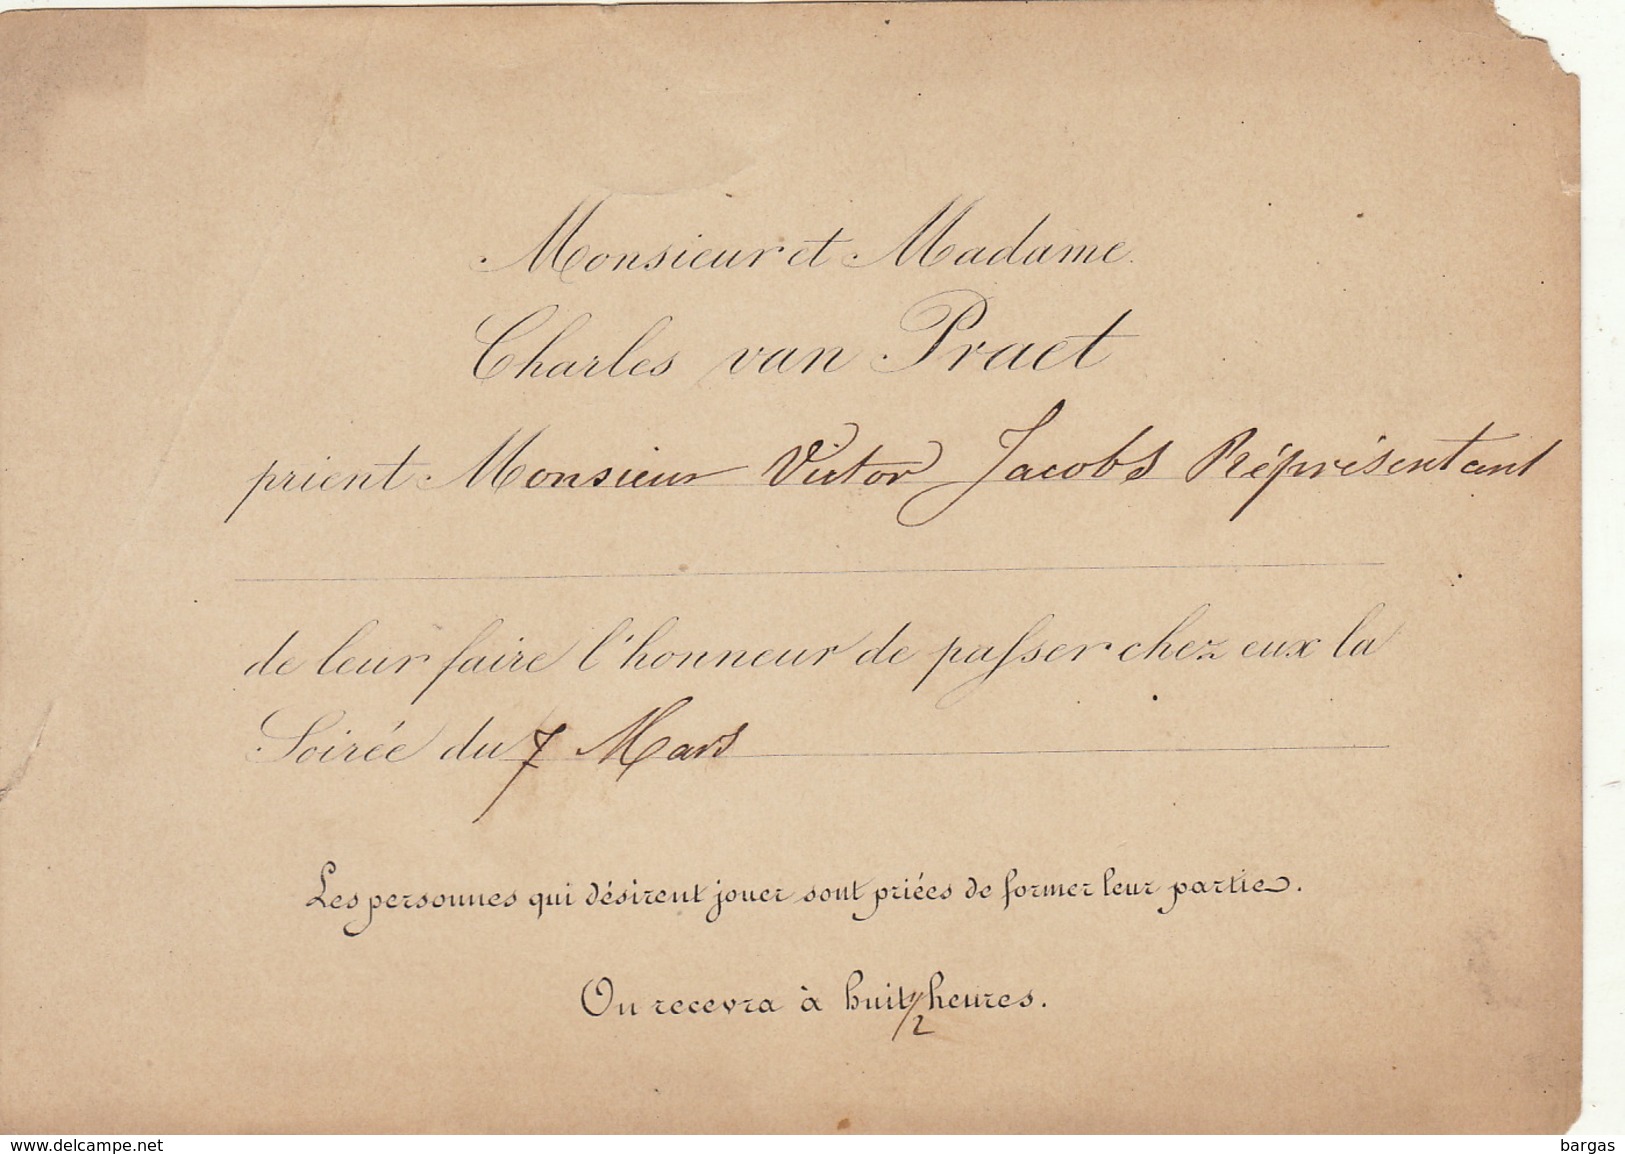 Monsieur et Madame
Charles van Praet
prient Monsieur Victor Jacobs Réprésentant
de leur faire l'honneur de passer chez eux la
Soirée du 7 Mars
Les personnes qui désirent jouer sont priées de former leur partie.
On recevra à huit 1/2 heures.
www.delcampe.net
bargas